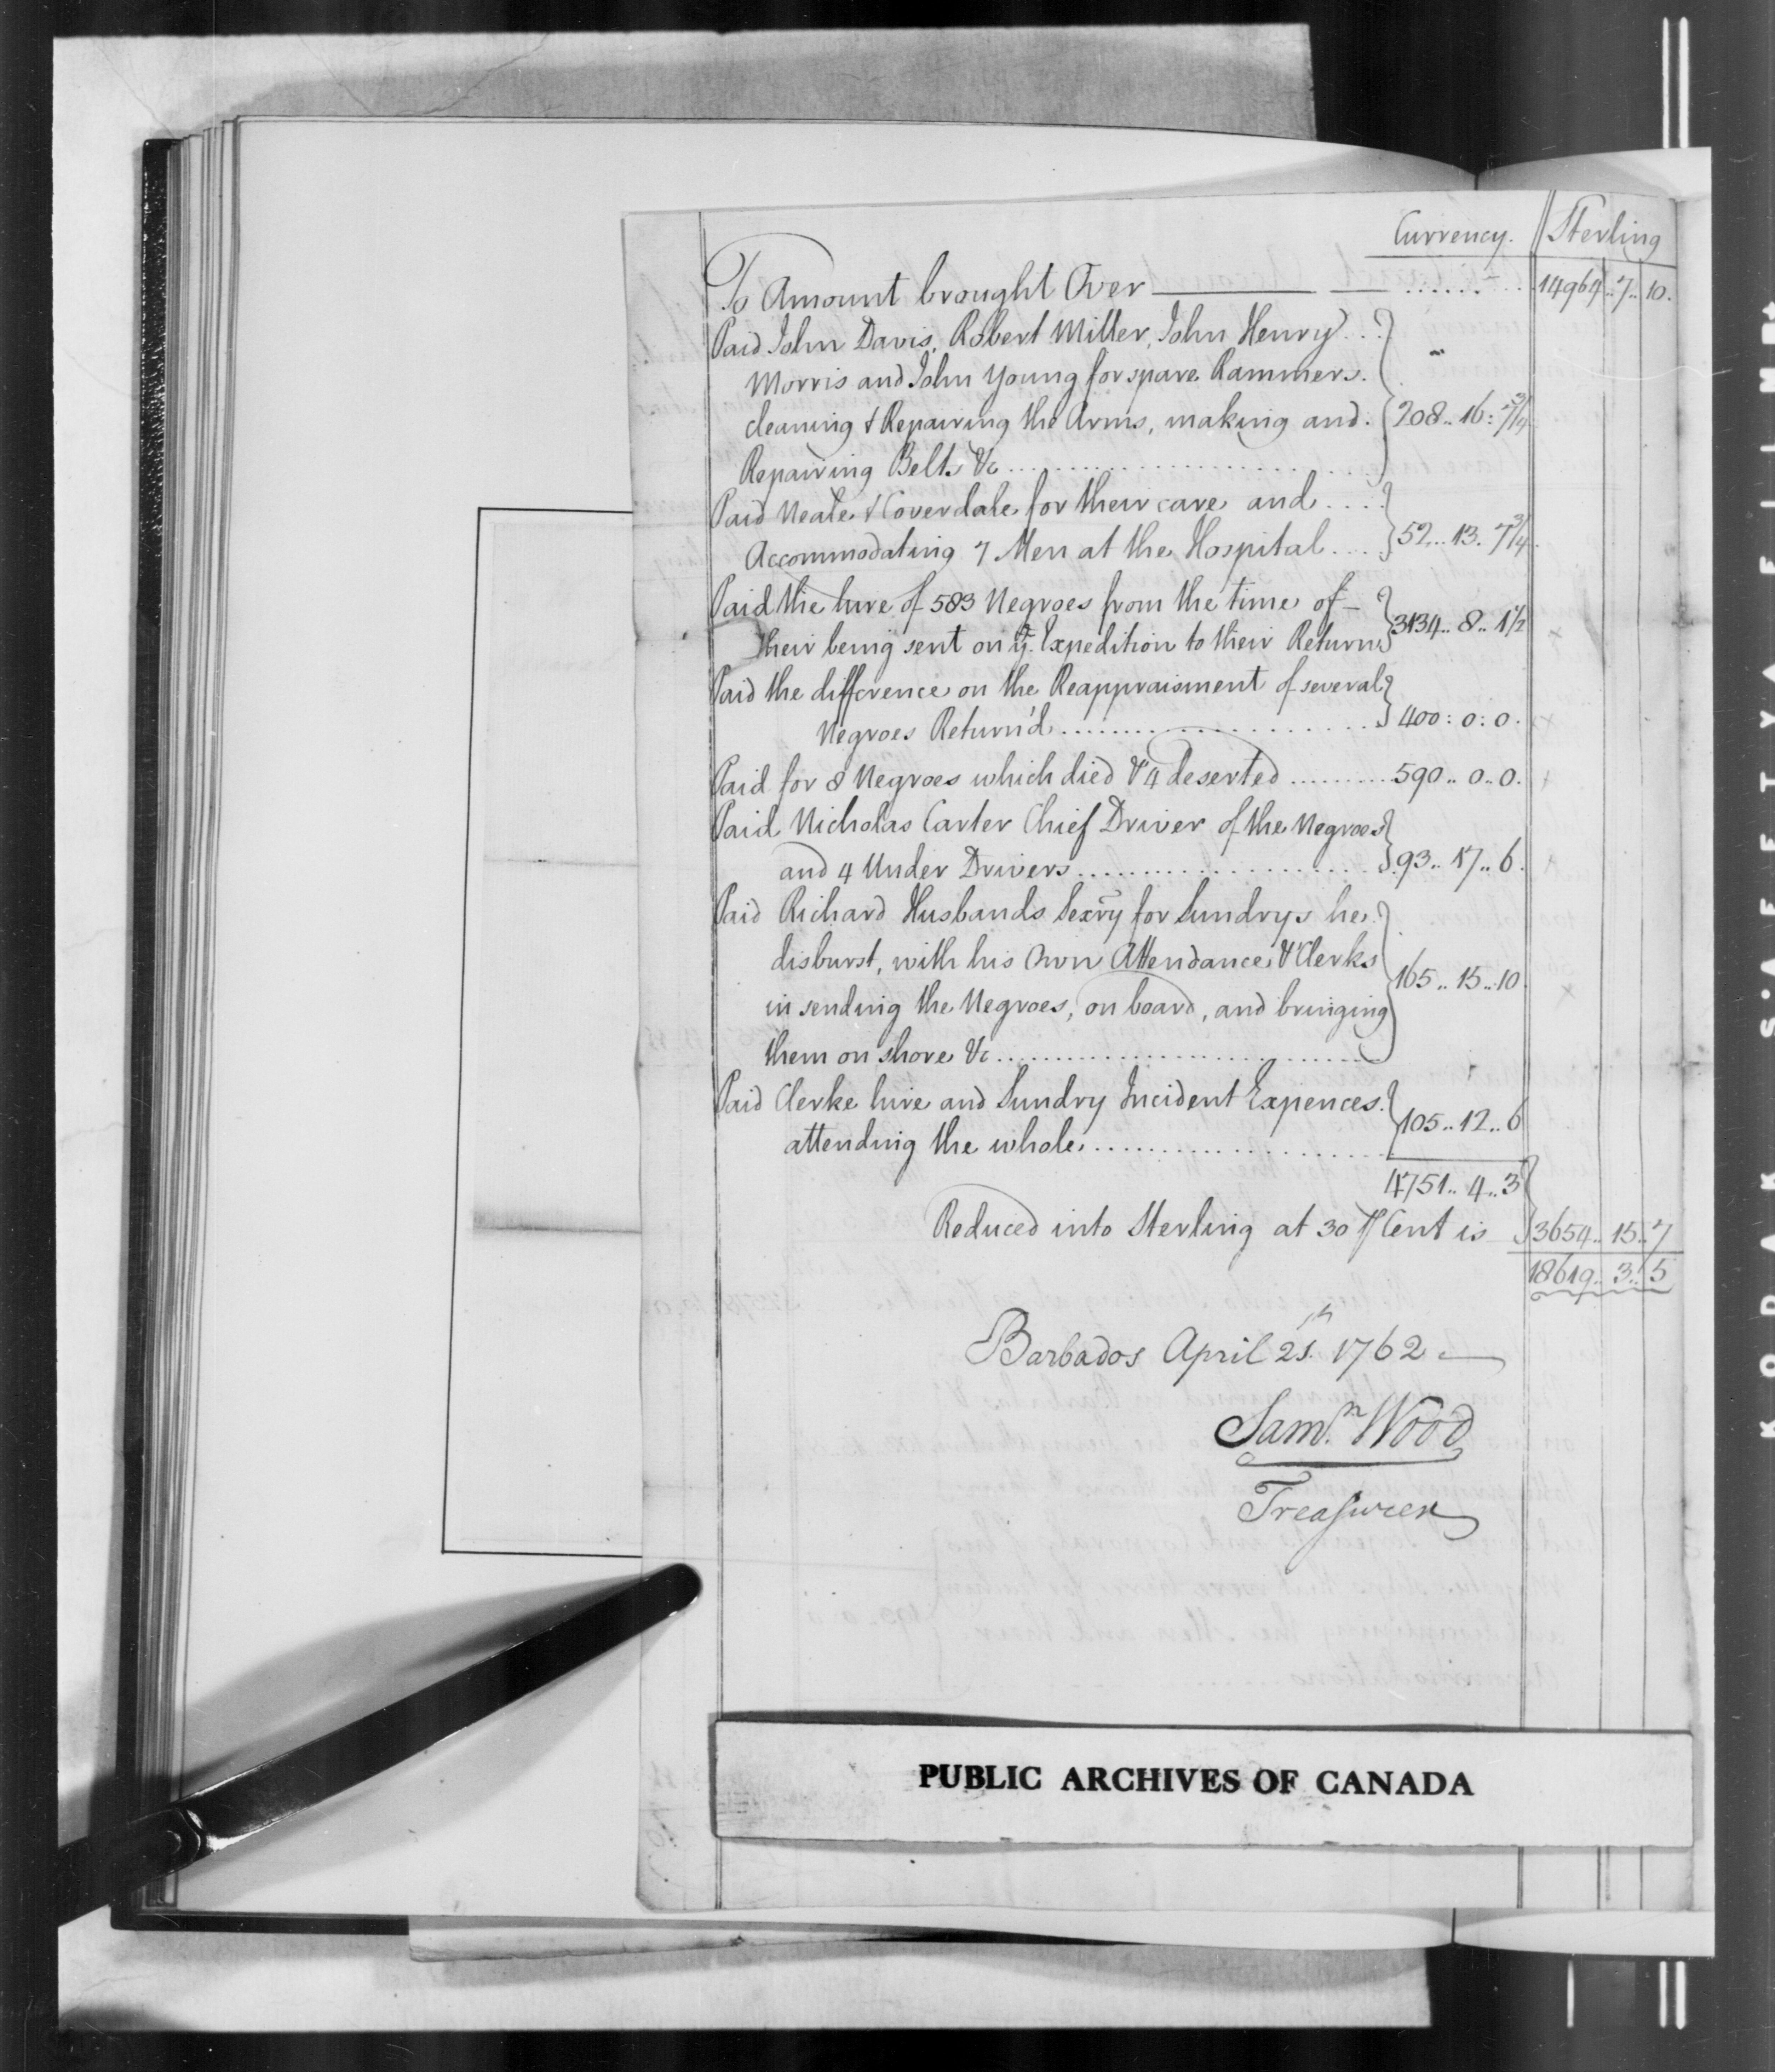 Currency. Sterling
To Amount brought Over 14964.. 7.. 10.
Paid John Davis, Robert Miller, John Henry
Morris and John Young for spare Rammers.
cleaning & Repairing the Arms, making and. 208.. 16: 7 3/4
Repairing Belts &c
Paid Neale & Coverdale for their care and
Accommodating 7 Men at the Hospital 52.. 13. 7 3/4
Paid the hire of 583 Negroes from the time of
their being sent on ye. Expedition to their Return 3134.. 8.. 1 1/2
Paid the difference on the Reappraisment of several
Negroes Return'd 400: 0: 0.
Paid for 8 Negroes which died & 4 deserted 590.. 0.. 0.
Paid Nicholas Carter Chief Driver of the Negroes
and 4 Under Drivers 93.. 17.. 6.
Paid Richard Husbands Secry for Sundrys he
disburst, with his Own Attendance & Clerks
in sending the Negroes, on board, and bringing 165.. 15.. 10.
them on shore &c
Paid Clerke hire and Sundry Incident Expences.
attending the whole 105.. 12.. 6
4751.. 4.. 3
Reduced into Sterling at 30 P Cent is 3654.. 15.. 7
18619.. 3.. 5
Barbados April 21st. 1762
Samn. Wood
Treasurer
PUBLIC ARCHIVES OF CANADA